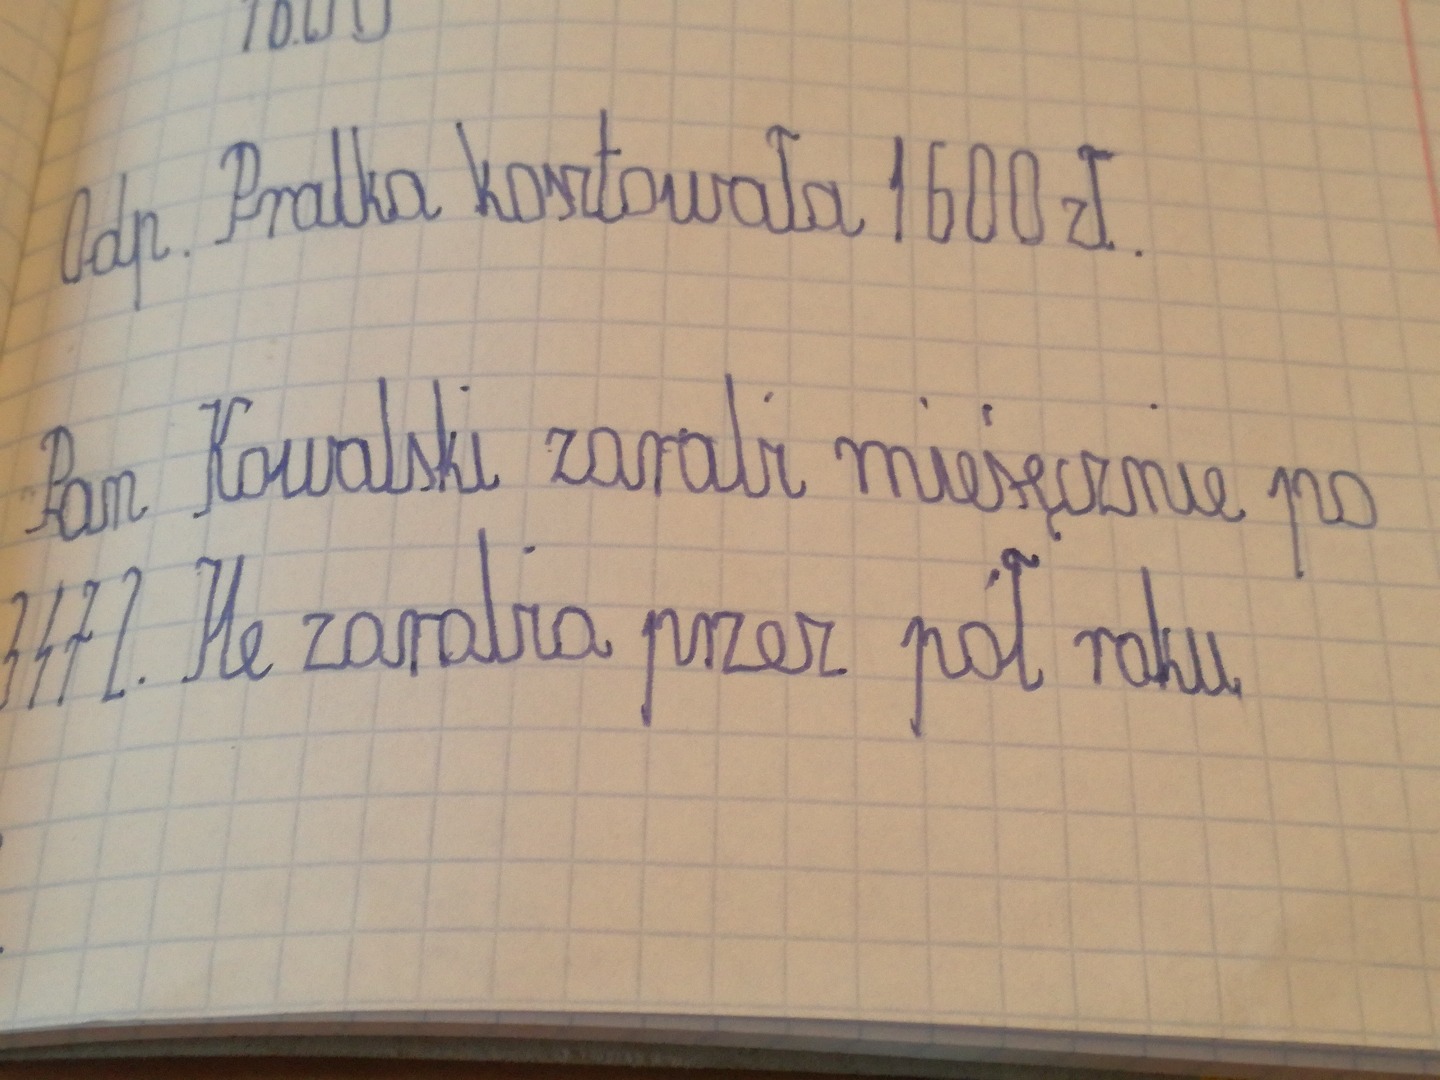 1600
Odp. Pralka kosztowała 1600 zł.
Pan Kowalski zarabi miesęcznie po
3472. Ile zarabia przez pół roku